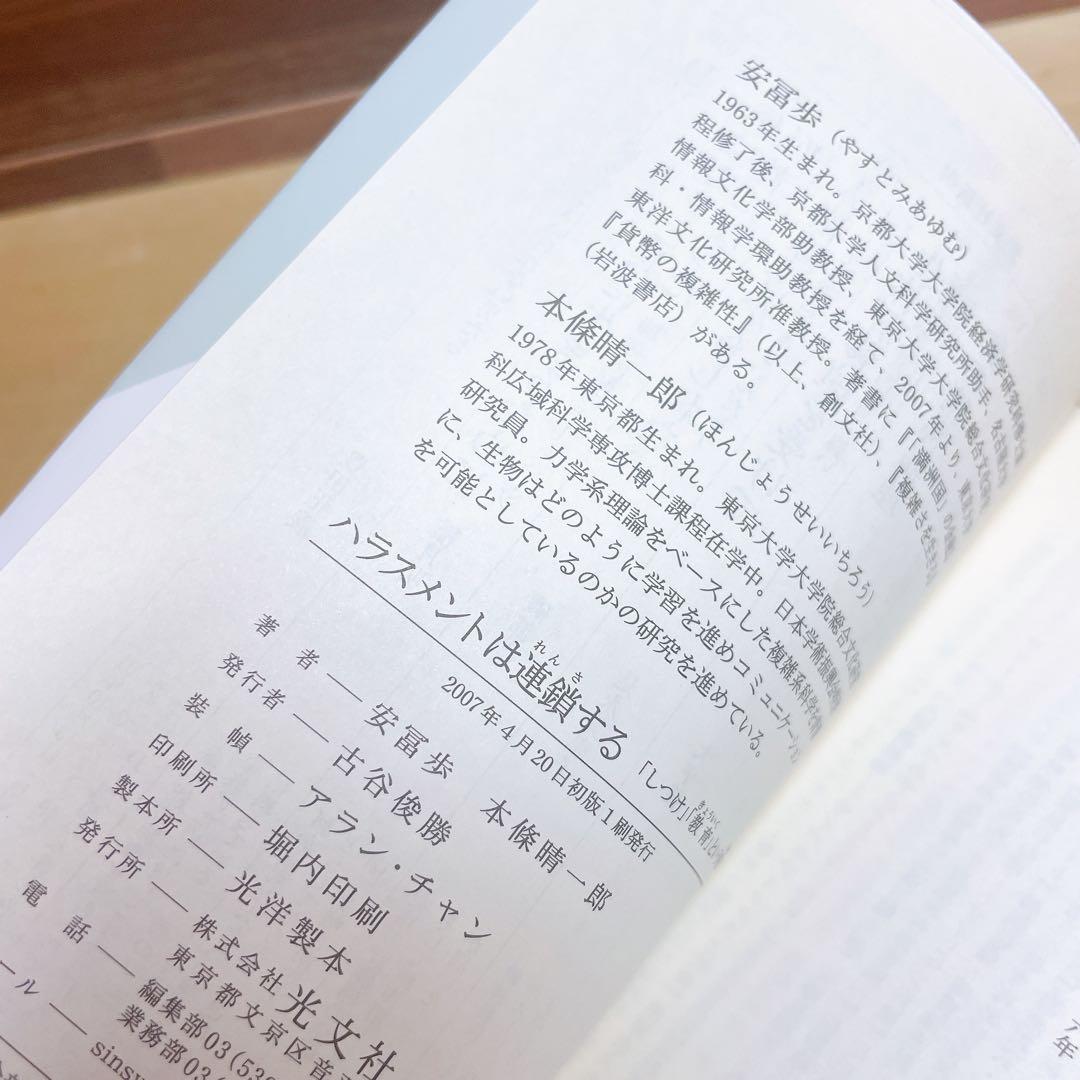 安冨歩（やすとみあゆむ）
1963年生まれ。京都大学大学院経済学研究科修士課
程修了後、京都大学人文科学研究所助手、名古屋大学
情報文化学部助教授、東京大学大学院総合文化研究
科・情報学環助教授を経て、2007年より、東京大学
東洋文化研究所准教授。著書に『「満洲国」の金融』
『貨幣の複雑性』（以上、創文社）、『複雑さを生きる』
（岩波書店）がある。
本條晴一郎（ほんじょうせいいちろう）
1978年東京都生まれ。東京大学大学院総合文化研究
科広域科学専攻博士課程在学中。日本学術振興会特別
研究員。力学系理論をベースにした複雑系科学を
に、生物はどのように学習を進めコミュニケーション
を可能としているのかの研究を進めている。
ハラスメントは連鎖する 「しつけ」「教育」とい
れんさ
きょういく
2007年4月20日初版1刷発行
著者 ― 安冨歩 本條晴一郎
発行者 ― 古谷俊勝
装幀 ― アラン・チャン
印刷所 ― 堀内印刷
製本所 ― 光洋製本
発行所 ― 株式会社 光文社
東京都文京区音
電話 ― 編集部03(539
業務部03(
ール ― sinsy
年